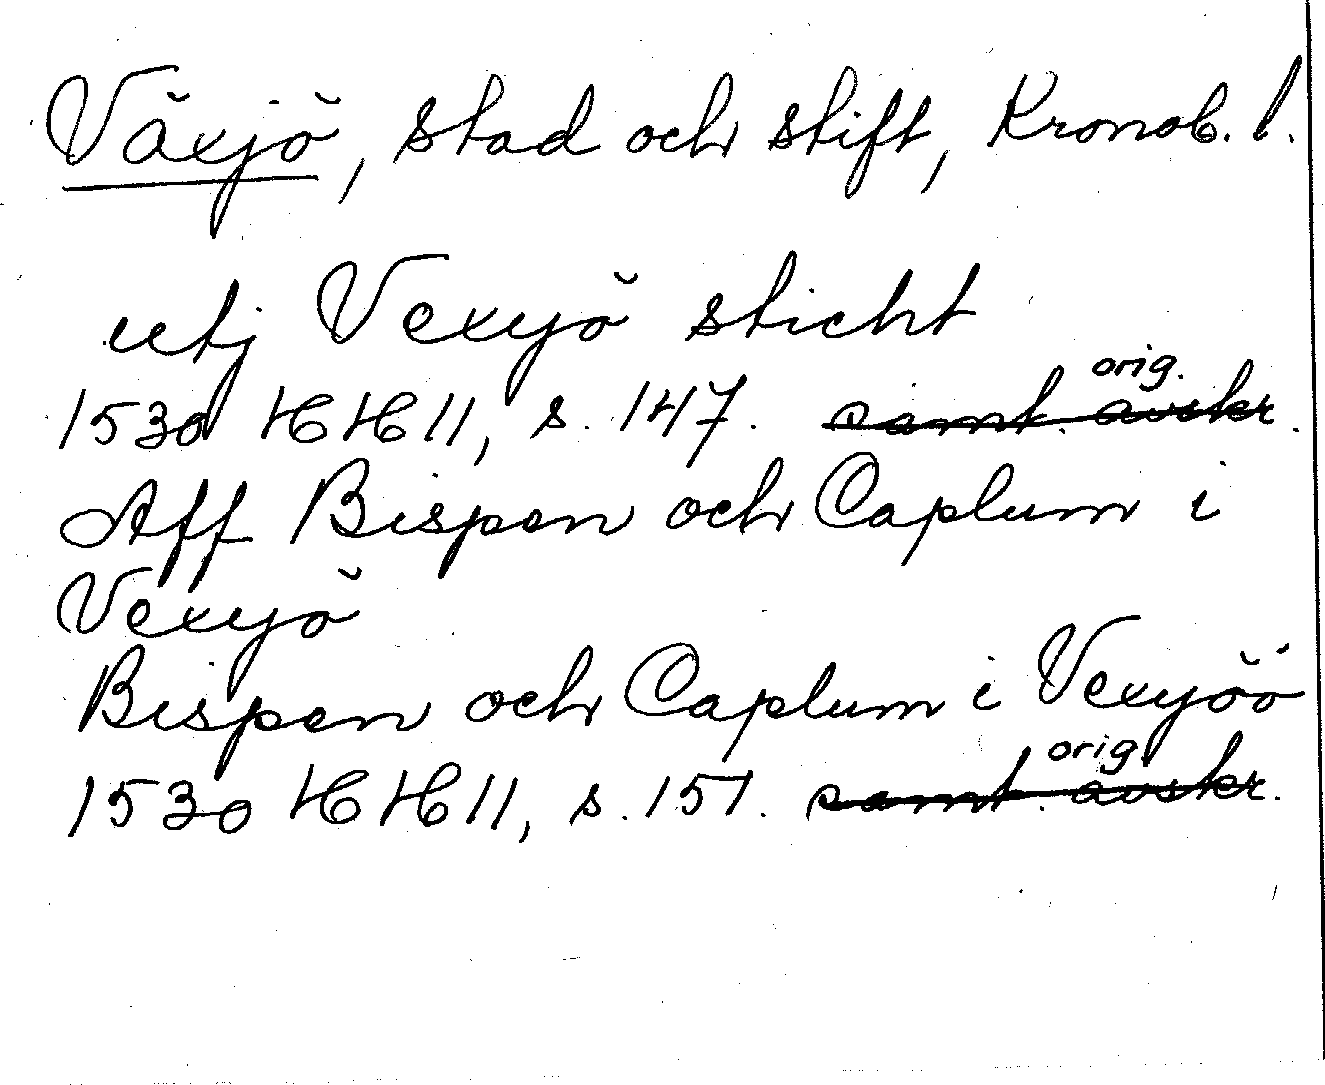 Växjö, stad och stift, Kronob. l.
utj Vexyö sticht
1530 HH 11, s. 147. samt. avskr. orig.
Aff Bispen och Caplum i
Vexyö
Bispen och Caplum i Vexyöö
1530 HH 11, s. 151. samt. avskr. orig.